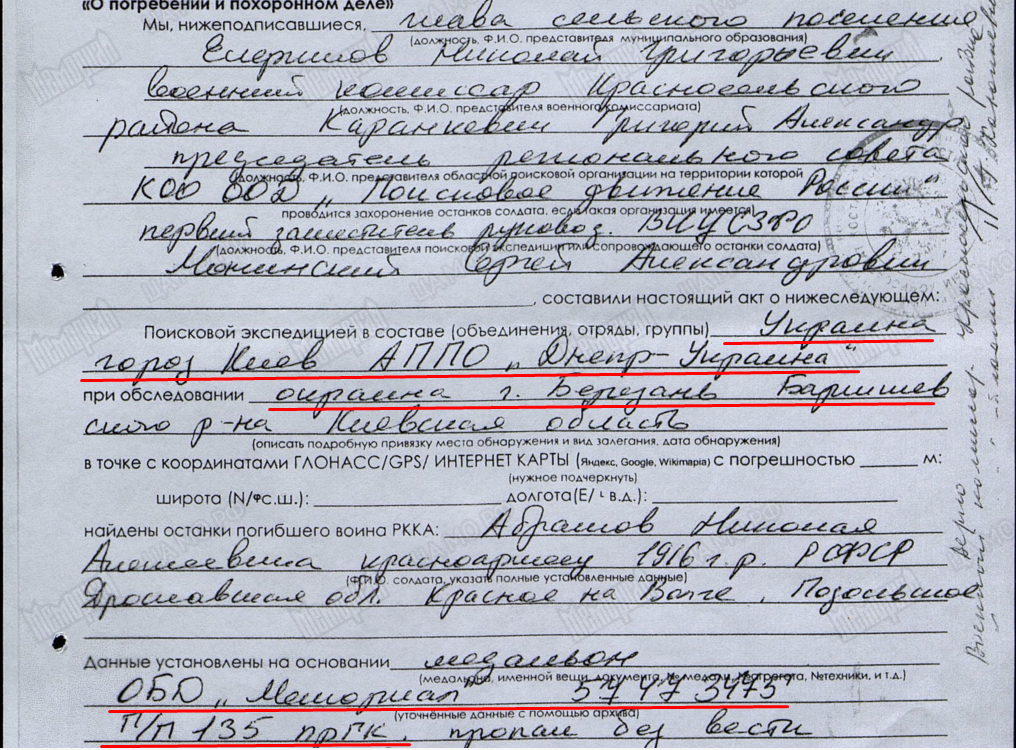 «О погребении и похоронном деле»
Мы, нижеподписавшиеся, глава сельского поселения
(должность, Ф.И.О. представителя муниципального образования)
Николай Григорьевич
военный комиссар Красносельского
(должность, Ф.И.О. представителя военного комиссариата)
района Каранкевич Григорий Александр
председатель регионального совета
(должность, Ф.И.О. представителя областной поисковой организации на территории которой
КОО ООД „Поисковое движение России“
проводится захоронение останков солдата, если такая организация имеется)
первый заместитель руковод.
(должность, Ф.И.О. представителя поисковой экспедиции или сопровождающего останки солдата)
Сергей Александрович
, составили настоящий акт о нижеследующем:
Поисковой экспедицией в составе (объединения, отряды, группы) Украина
город Киев АППО „Днепр-Украина“
при обследовании окраина г. Березань Баришев
ского р-на Киевская область
(описать подробную привязку места обнаружения и вид залегания, дата обнаружения)
в точке с координатами ГЛОНАСС/GPS/ ИНТЕРНЕТ КАРТЫ (Яндекс, Google, Wikimapia) с погрешностью м:
(нужное подчеркнуть)
широта (N/ с.ш.): долгота(E/ в.д.):
найдены останки погибшего воина РККА: Абрамов Николая
Алексеевича красноармеец 1916 г.р. РСФСР
(Ф.И.О. солдата, указать полные установленные данные)
Ярославская обл. Красное на Волге,
Данные установлены на основании медальон
(медальона, именной вещи, документа, №медали, №агрегата, №техники, и т.д.)
ОБД „Мемориал“ 57473475
(уточнённые данные с помощью архива)
П/П 135 прГК. пропал без вести
Верно
Военный комиссар